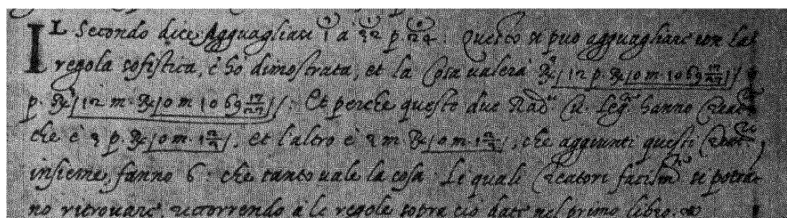 IL Secondo dice Agguaglisi 1³ a 32¹ p. 24: Questo si puo agguagliare con la
regola sofistica, è hò dimostrata, et la Cosa valerà R³[12 p. R[0 m. 1069 17/27]]
p. R³[12 m. R[0 m. 1069 17/27]]: Et perche queste due Rad. Cu. Leg. hanno Creat.
che è 3 p. R[0 m. 1 2/3], et l'altro è 3 m. R[0 m. 1 2/3], che aggiunti questi Creat.
insieme, fanno 6: che tanto vale la cosa: Le quali Creatori facilm. si potra-
no ritrovare, ricorrendo à le regole sopra ciò date nel primo libro: